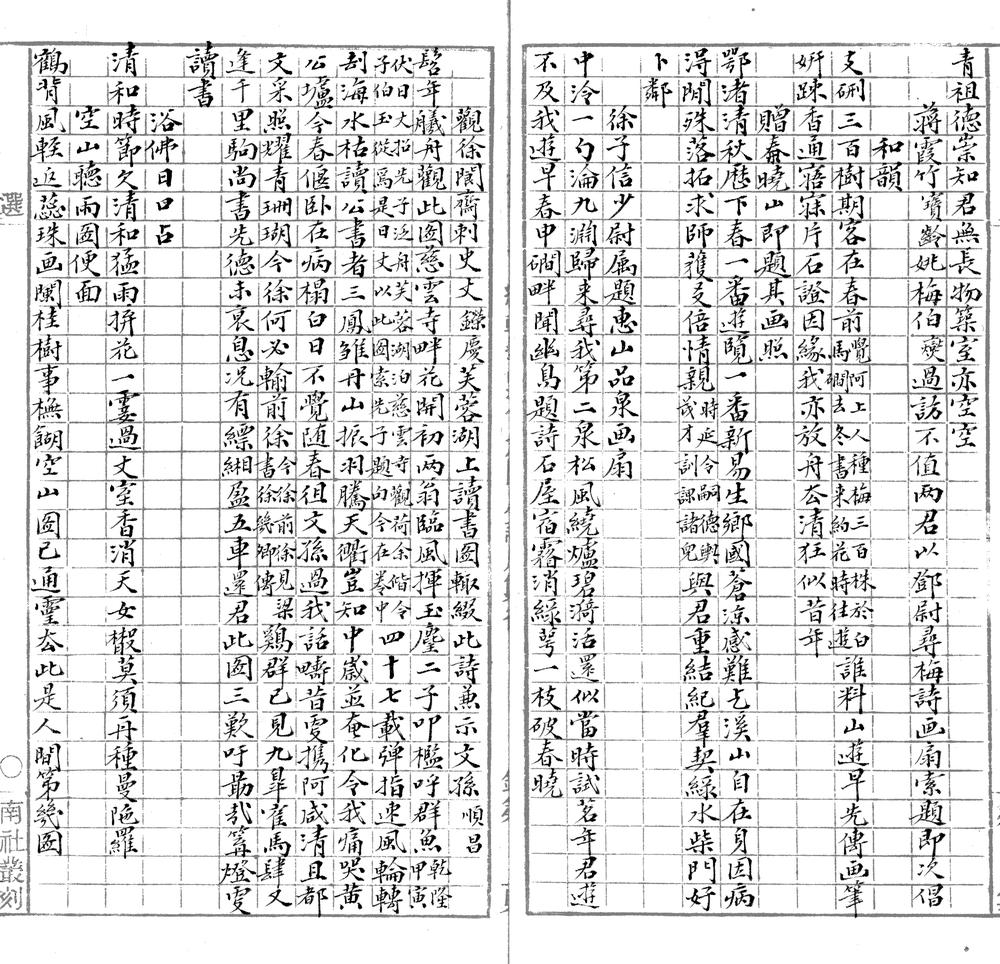 青祖德崇知君無長物築室亦空空
蔣霞竹寶齡姚梅伯燮過訪不值兩君以鄧尉尋梅詩画扇索題即次倡
和韻
支硎三百樹期客在春前覺阿上人種梅三百株於白馬磵去冬書来約花時往遊誰料山遊早先傳画筆
妍踈香通寤寐片石證因緣我亦放舟去清狂似昔年
贈秦曉山即題其画照
鄂渚清秋歷下春一番遊覽一番新易生鄉國蒼涼感難乞溪山自在身因病
淂閒殊落拓求師獲友倍情親時延令嗣德輿茂才訓課諸兒與君重結紀羣契綠水柴門好
卜鄰
徐子信少尉属題惠山品泉画扇
中泠一勺淪九淵歸来尋我第二泉松風繞爐碧漪活還似當時試茗年君遊
不及我遊早春申磵畔聞幽鳥題詩石屋宿霧消綠萼一枝破春曉
觀徐閬齋刺史丈鑅慶芙蓉湖上讀書圖輒綴此詩兼示文孫順昌
髫年艤舟觀此圖慈雲寺畔花開初兩翁臨風揮玉麈二子叩檻呼群魚乾隆甲寅
伏日丈招先子泛舟芙蓉湖泊慈雲寺觀荷余偕令子伯玉從焉是日丈以此圖索先子題句今在卷中四十七載弹指速風輪轉
刦海水枯讀公書者三鳳雏丹山振羽騰天衢豈知中歲並奄化令我痛哭黄
公壚今春偃卧在病榻白日不覺随春徂文孫過我話疇昔雯携阿咸清且都
文采照耀青珊瑚今徐何必輸前徐今徐前徐見梁書徐幾卿傳鷄群已見九皐隺馬肆又
逢千里駒尚書先德未衰息况有縹緗盈五車還君此圖三歎吁勗哉篝燈雯
讀書
浴佛日口占
清和時節久清和猛雨拚花一霎過丈室香消天女散莫須再種曼陁羅
空山聽雨圖便面
鶴背風輕返蕊珠画闌桂樹事橅餬空山圖已通靈去此是人間第幾圖
選
〇
南社叢刻